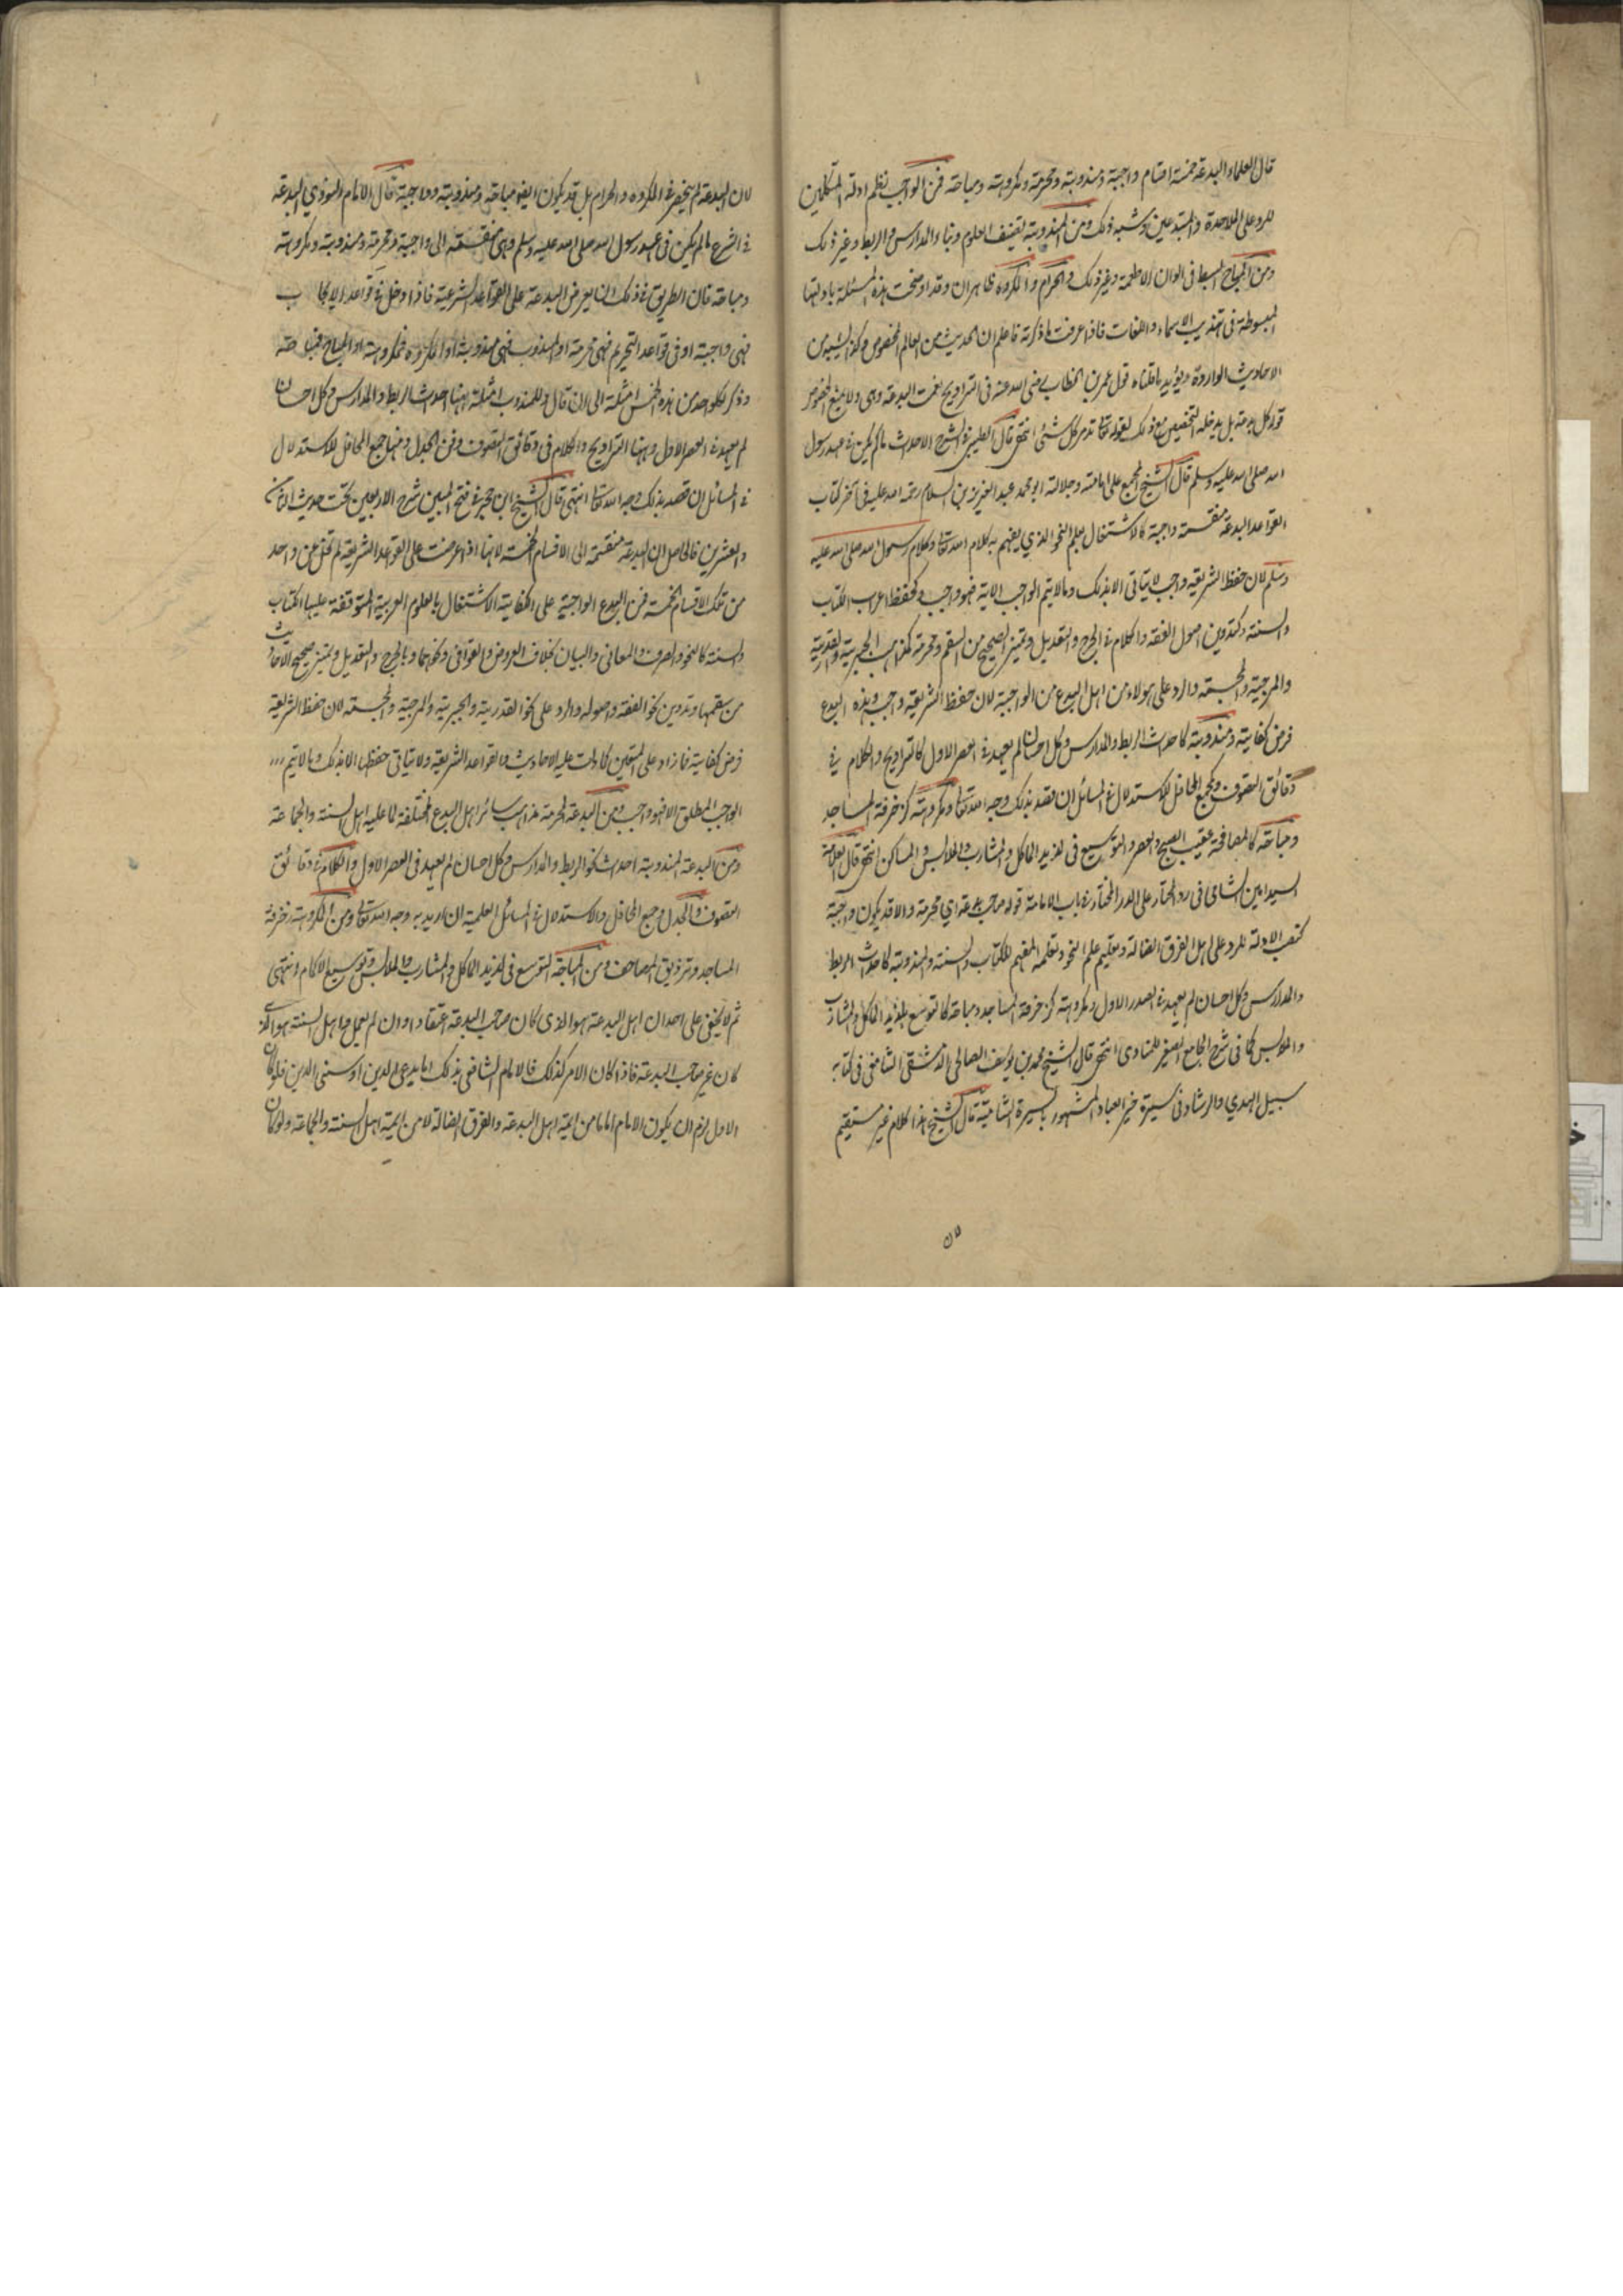 قال العلماء البدعة خمسة اقسام واجبة ومندوبة ومحرمة ومكروهة ومباحة فمن الواجب نظم ادلة المتكلمين
للرد على الملاحدة والمبتدعين وشبه ذلك ومن المندوبة تصنيف العلوم وبناء المدارس والربط وغير ذلك
ومن المباح البسط فى الوان الاطعمة وغير ذلك والحرام والمكروه ظاهران وقد اوضحت هذه المسئلة بادلتها
المبسوطة فى تهذيب الاسماء واللغات فاذا عرفت ما ذكرته فاعلم ان الحديث من العام المخصوص وكذا الشبه من
الاحاديث الواردة ويؤيد ما قلناه قول عمر بن الخطاب رضى الله عنه فى التراويح نعمت البدعة وهى ولا يمنع المخصوص
قوله كل بدعة بل يدخله التخصيص مع ذلك لقوله تعالى تدمر كل شئ انتهى قال الطيبى فى الشرح الاحداث ما لم يكن فى عهد رسول
الله صلى الله عليه وسلم قال الشيخ المجمع على امامته وجلالته ابو محمد عبد العزيز بن السلام رحمة الله عليه فى آخر كتاب
القواعد البدعة منقسمة واجبة كالاشتغال بعلم النحو الذي يفهم به كلام الله تعالى وكلام رسول الله صلى الله عليه
وسلم لان حفظ الشريعة واجب لا يتاتى الا بذلك وما لا يتم الواجب الا به فهو واجب وكحفظ اعراب الكتاب
والسنة وكتدوين اصول الفقه والكلام فى الجرح والتعديل وتميز الصحيح من السقم ومحرمة كمذاهب الجبرية والقدرية
والمرجية والمجسمة والرد على هولاء من اهل البدع من الواجبة لان حفظ الشريعة واجب وهذه البدع
فرض كفاية ومندوبة كاحداث الربط والمدارس وكل احسان لم يعهد فى العصر الاول كالتراويح والكلام فى
دقائق التصوف وكجمع المحافل للاستدلال فى المسائل ان قصد بذلك وجه الله تعالى ومكروهة كزخرفة المساجد
ومباحة كالمصافحة عقيب الصبح والعصر والتوسيع فى لذيذ الماكل والمشارب والملابس والمساكن انتهى قال العلامة
السيد امين الشامى فى رد المحتار على الدر المختار فى باب الامامة قوله صاحب بدعة اي محرمة والا قد يكون واجبة
كنصب الادلة للرد على اهل الفرق الضالة وتعليم علم النحو وتعلمه المفهم للكتاب والسنة والمندوبة كاحداث الربط
والمدارس وكل احسان لم يعهد فى الصدر الاول ومكروهة كزخرفة المساجد ومباحة كالتوسع بلذيذ الماكل والمشارب
والملابس كما فى شرح الجامع الصغير للمناوى انتهى قال الشيخ محمد بن يوسف الصالحى الدمشقى الشامى فى كتابه
سبيل الهدي والرشاد فى سيرة خير العباد المشهور بالسيرة الشامية قال الشيخ هذا كلام غير مستقيم
لان
لان البدعة لم ينحصر فى المكروه والحرام بل قد يكون ايضا مباحة ومندوبة وواجبة قال الامام النووي البدعة
فى الشرع ما لم يكن فى عهد رسول الله صلى الله عليه وسلم وهى منقسمة الى واجبة ومحرمة ومندوبة ومكروهة
ومباحة فان الطريق فى ذلك ان يعرض البدعة على القواعد الشرعية فاذا دخل فى قواعد الايجاب
فهى واجبة او فى قواعد التحريم فهى محرمة او المندوب فهى مندوبة او المكروه فمكروهة او المباح فمباحة
وذكر لكل واحد من هذه الخمس امثلة الى ان قال وللمندوب امثلة منها احداث الربط والمدارس وكل احسان
لم يعهد فى العصر الاول ومنها التراويح والكلام فى دقائق التصوف وفن الجدل ومنها جمع المحافل للاستدلال
فى المسائل ان قصد بذلك وجه الله تعالى انتهى قال الشيخ ابن حجر فى فتح المبين شرح الاربعين تحت حديث الثامن
والعشرين فالحاصل ان البدعة منقسمة الى الاقسام الخمسة لانها اذا عرضت على القواعد الشريعة لم تخل عن واحد
من تلك الاقسام الخمسة فمن البدع الواجبة على الكفاية الاشتغال بالعلوم العربية المتوقفة عليها الكتاب
والسنة كالنحو والصرف والمعانى والبيان بخلاف العروض والقوافى ونحوهما وبالجرح والتعديل وتميز صحيح الاحاديث
من سقمها وتدوين نحو الفقه واصوله والرد على نحو القدرية والجبرية والمرجية والمجسمة لان حفظ الشريعة
فرض كفاية فما زاد على المتعين كما دلت عليه الاحاديث والقواعد الشريعة ولا يتاتى حفظها الا بذلك وما لا يتم
الواجب المطلق الا فهو واجب ومن البدعة المحرمة مذاهب سائر اهل البدع المختلفة لما عليه اهل السنة والجماعة
ومن البدعة المندوبة احداث نحو الربط والمدارس وكل احسان لم يعهد فى العصر الاول والكلام فى دقائق
التصوف والجدل وجمع المحافل والاستدلال فى المسائل العلمية ان اريد به وجه الله تعالى ومن المكروهة زخرفة
المساجد وتزويق المصاحف ومن المباحة التوسع فى لذيذ الماكل والمشارب والملابس وتوسيع الاكمام انتهى
ثم لا يخفى على احد ان اهل البدعة هو الذى كان صاحب البدعة اعتقادا وان لم يعمل واهل السنة هو الذى
كان غير صاحب البدعة فاذا كان الامر كذلك فالامام الشافعى بذلك اما بدعى الدين او سنى الدين فلو كان
الاول لزم ان يكون الامام اماما من ايمة اهل البدعة والفرق الضالة لا من ايمة اهل السنة والجماعة ولو كان